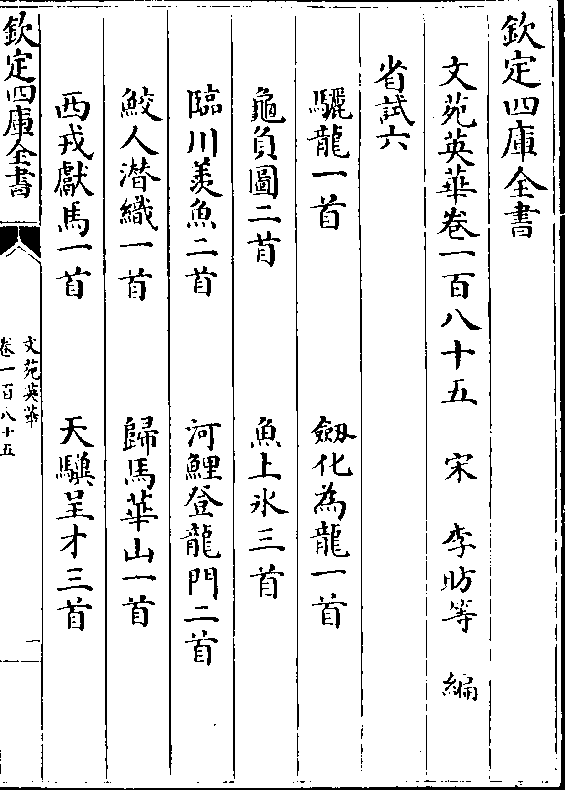 欽定四庫全書
文苑英華卷一百八十五　宋　李昉等　編
省試六
驪龍一首　劒化為龍一首
龜負圖二首　魚上氷三首
臨川羨魚二首　河鯉登龍門二首
鮫人潛織一首　歸馬華山一首
西戎獻馬一首　天驥呈才三首
欽定四庫全書
文苑英華
卷一百八十五
一